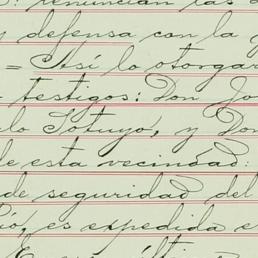 : renuncian las
y defensa con la
= Así lo otorgar
testigos: Don Jo
lo Sotuyo, y Don
de esta vecindad:
de seguridad del
Pió, es expedida e